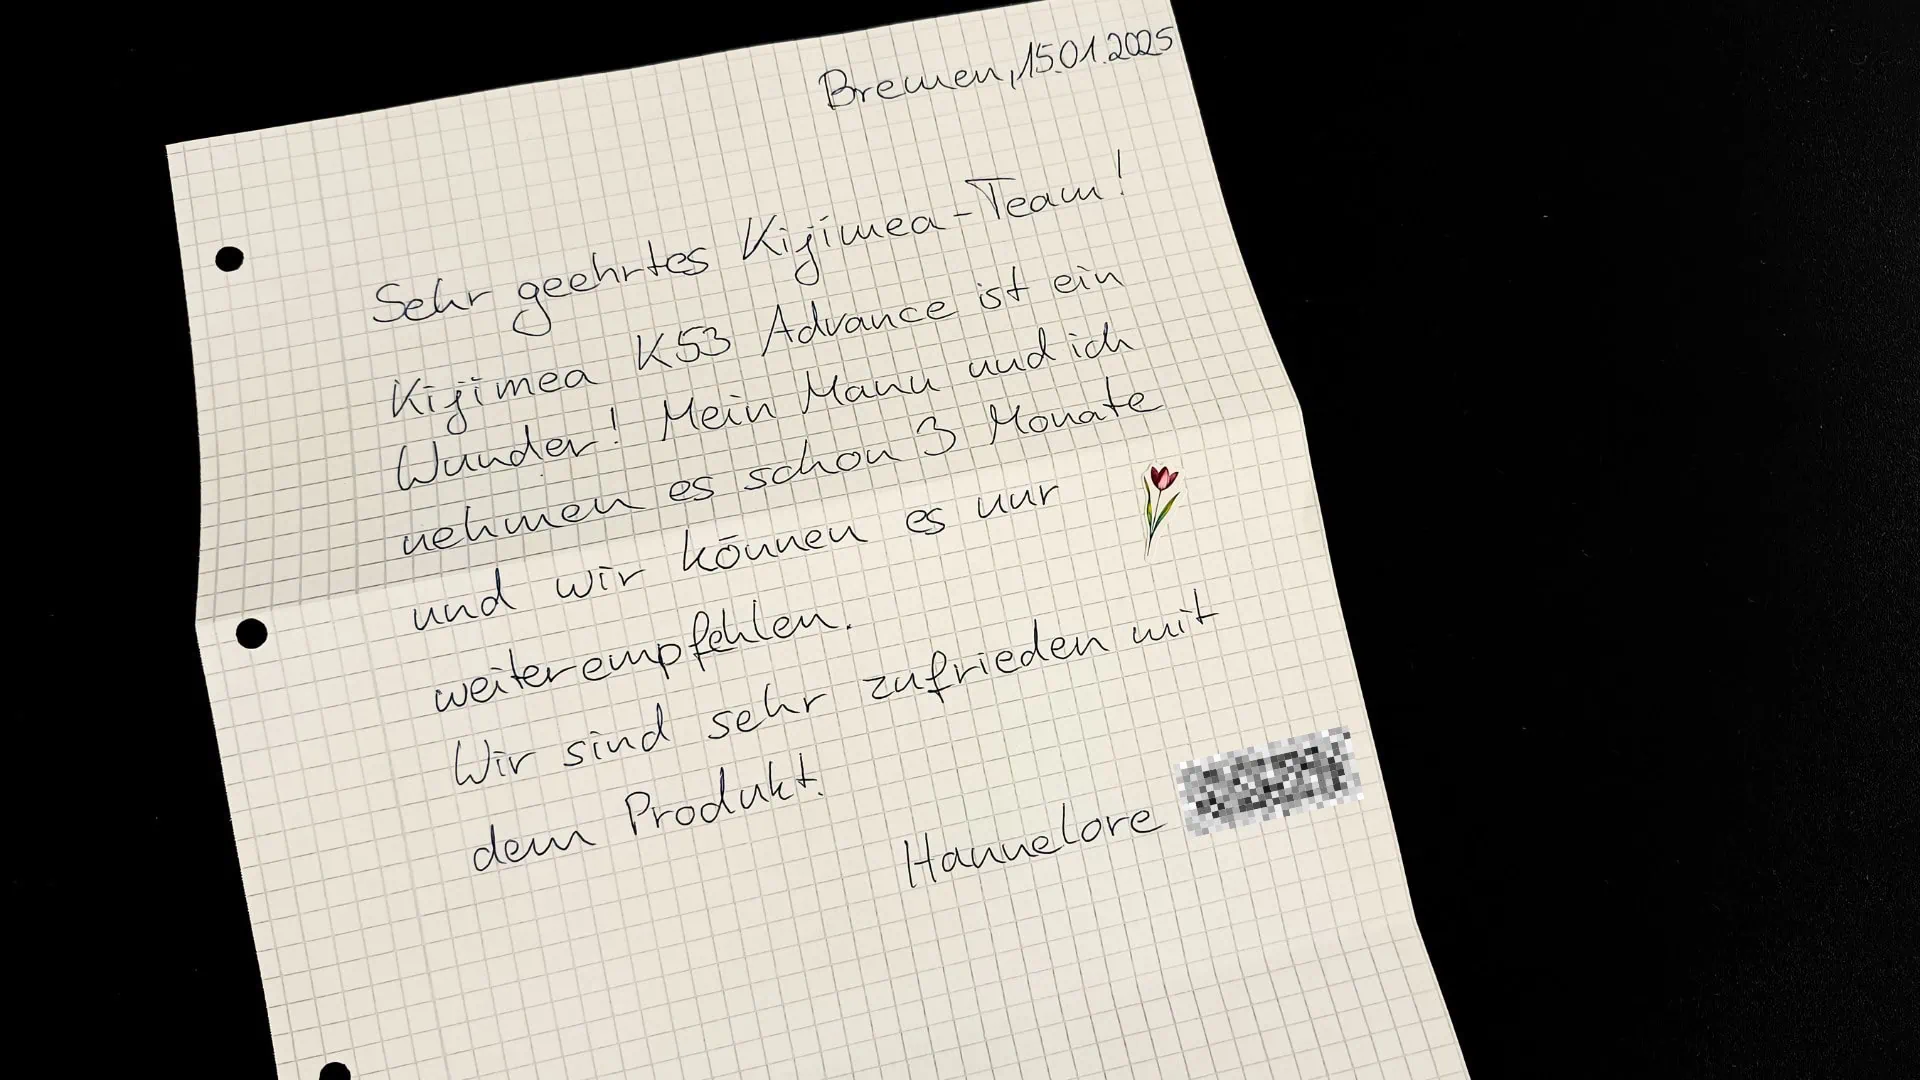 Bremen, 15.01.2025
Sehr geehrtes Kijimea-Team!
Kijimea K53 Advance ist ein
Wunder! Mein Mann und ich
nehmen es schon 3 Monate
und wir können es nur
weiterempfehlen.
Wir sind sehr zufrieden mit
dem Produkt.
Hannelore